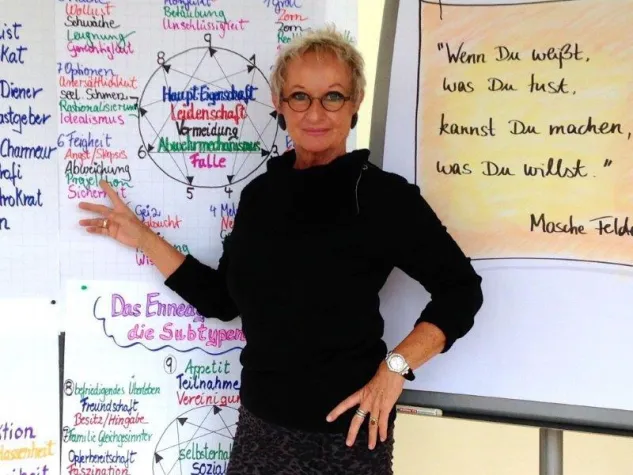 ist
kat
Diener
astgeber
Charmeur
ofi
okrat
n
tion
lassenheit
eiheit
Wollust
Schwäche
Leugnung
7 Optionen
Unersättlichkeit
seel. Schmerz
Rationalisierung
Idealismus
6 Feigheit
Angst/Skepsis
Abweichung
Projektion
Sicherheit
Betäubung
Unschlüssigkeit
Zorn
9
8
6
5
4
Haupt-Eigenschaft
Leidenschaft
Vermeidung
Abwehrmechanismus
Falle
Geiz
4 Mel
Das Ennea
die Subtypen
9 Appetit
Teilnahme
Vereinigung
8 befriedigendes Überleben
Freundschaft
Besitz/Hingabe
Familie Gleichgesinnter
Opferbereitschaft
Faszination
selbsterhal
Sozial
"Wenn Du weißt,
was Du tust,
kannst Du machen,
was Du willst."
Mosche Felde